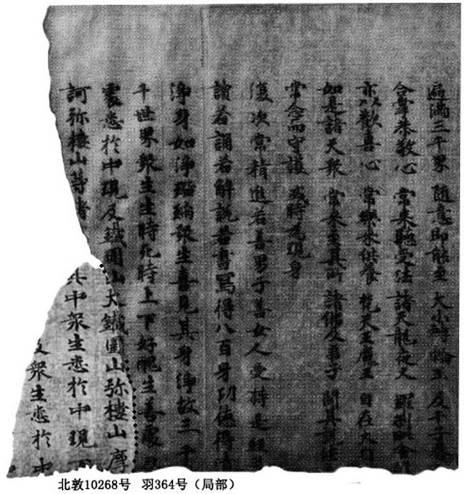 遍滿三千界 隨意即能至 大小轉輪王 及千子
合掌恭敬心 常來聽受法 諸天龍夜叉 羅剎
亦以歡喜心 常樂來供養 梵天王魔王 自在大自
如是諸天衆 常來至其所 諸佛及弟子 聞其說法
常念而守護 或時為現身
復次常精進若善男子善女人受持是經
讀若誦若解說若書寫得八百身功德得清
淨身如淨瑠璃衆生憙見其身淨故三千
千世界衆生生時死時上下好醜生善處
處悉於中現及鐵圍山大鐵圍山弥樓山摩
訶弥樓山等諸
其中衆生悉於中現
及衆生悉於中
北敦10268号 羽364号（局部）